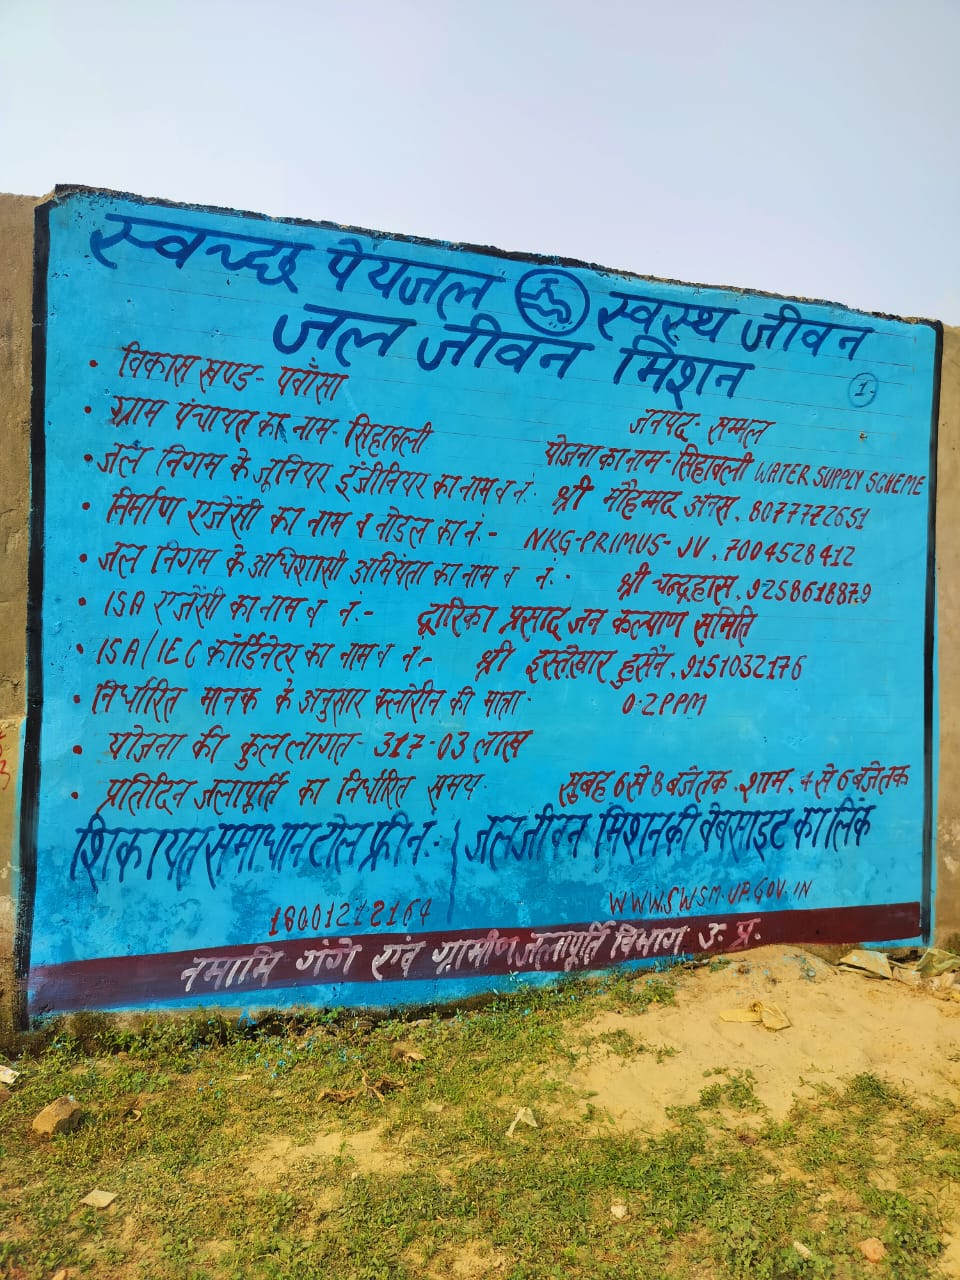 स्वच्छ पेयजल स्वस्थ जीवन
जल जीवन मिशन
1
• विकास खण्ड- पवाँसा
जनपद- सम्भल
• ग्राम पंचायत का नाम- सिहावली
योजना का नाम- सिहावली WATER SUPPLY SCHEME
• जल निगम के जूनियर इंजीनियर का नाम व नं. श्री मौहम्मद अनस, 8077772651
• निर्माण एजेंसी का नाम व नोडल का नं.- NKG-PRIMUS-JV, 7004528412
• जल निगम के अधिशासी अभियंता का नाम व नं. श्री चन्द्रहास, 9258618879
• ISA एजेंसी का नाम व नं.- द्वारिका प्रसाद जन कल्याण समिति
• ISA/IEC कॉर्डिनेटर का नाम व नं- श्री इस्तेखार हुसैन, 9151032176
• निर्धारित मानक के अनुसार क्लोरीन की मात्रा 0.2PPM
• योजना की कुल लागत- 317.03 लाख
• प्रतिदिन जलापूर्ति का निर्धारित समय सुबह 6 से 8 बजे तक, शाम, 4 से 6 बजे तक
शिकायत समाधान टोल फ्री नं.- जल जीवन मिशन की वेबसाइट का लिंक
18001212164 WWW.SWSM.UP.GOV.IN
नमामि गंगे एवं ग्रामीण जलापूर्ति विभाग उ. प्र.